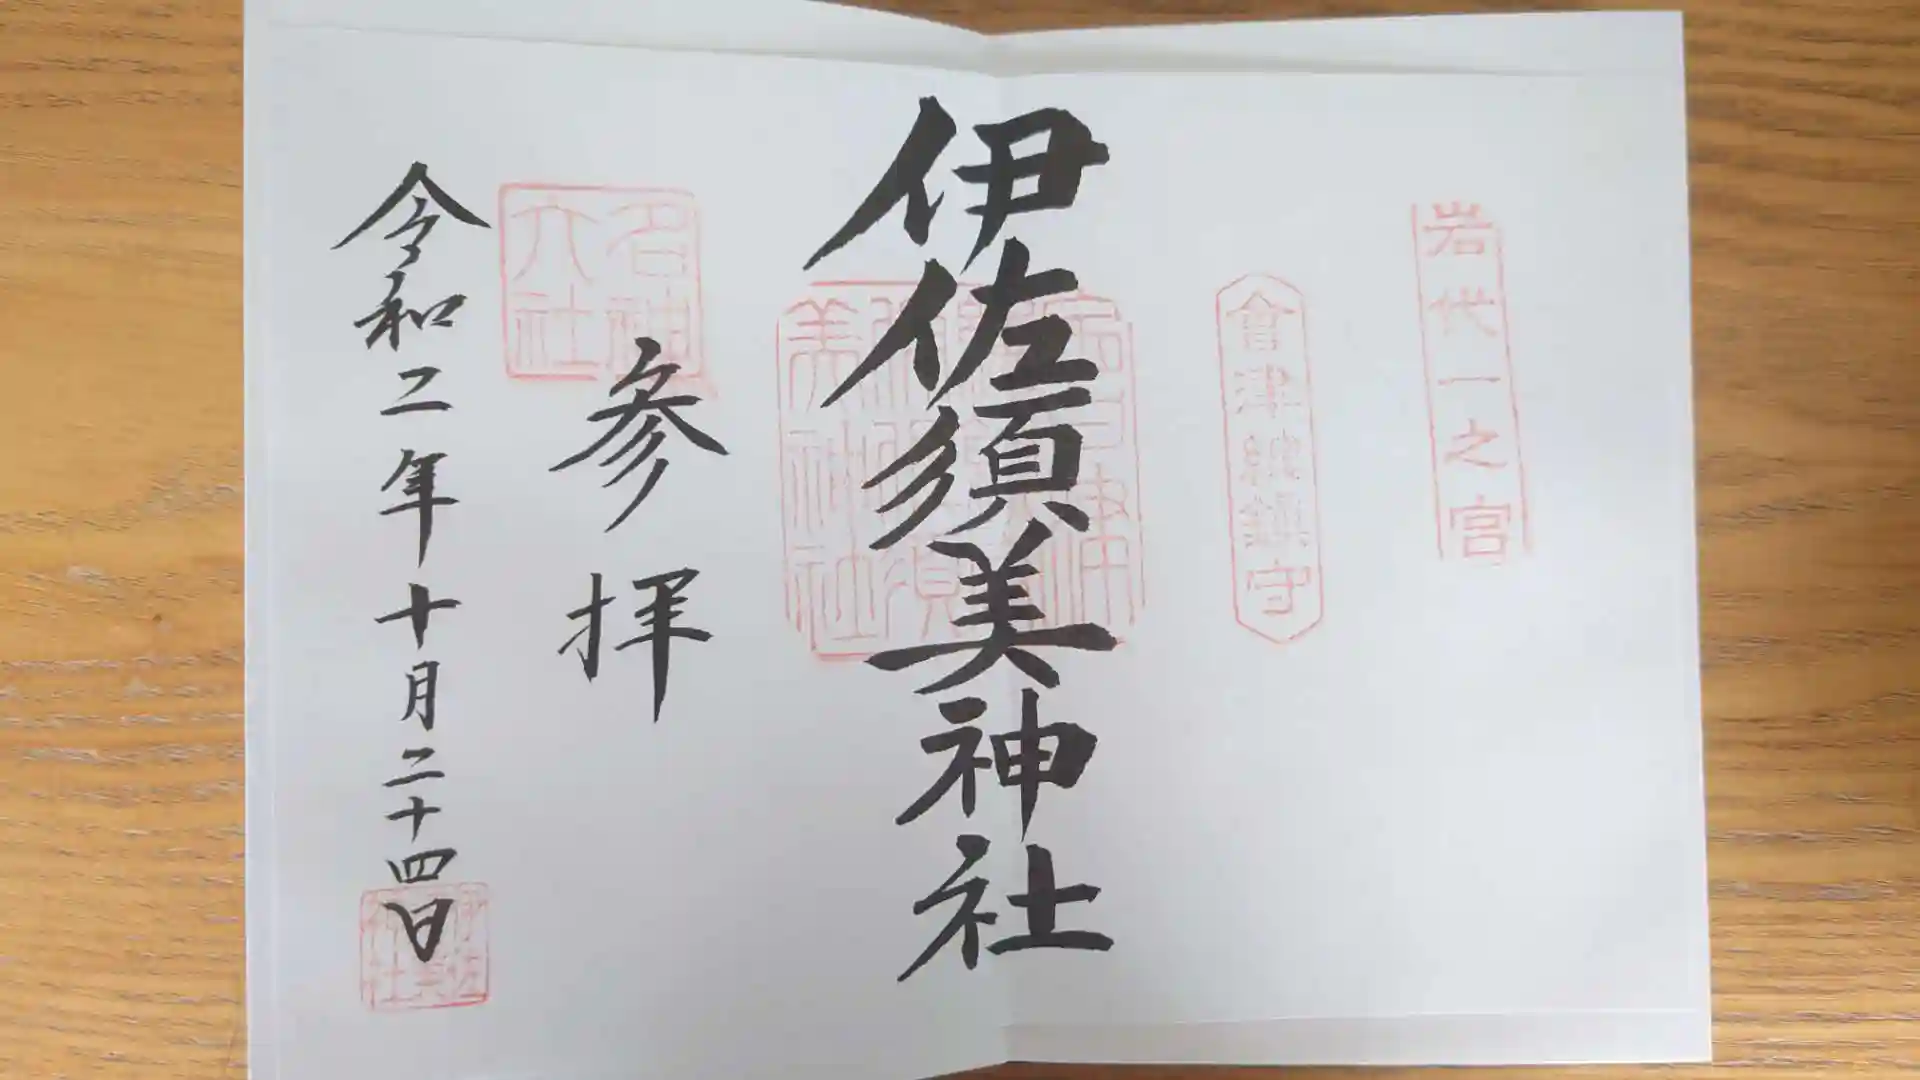 岩代一之宮
會津総鎮守
伊佐須美神社
名神
大社
参拝
令和二年十月二十四日